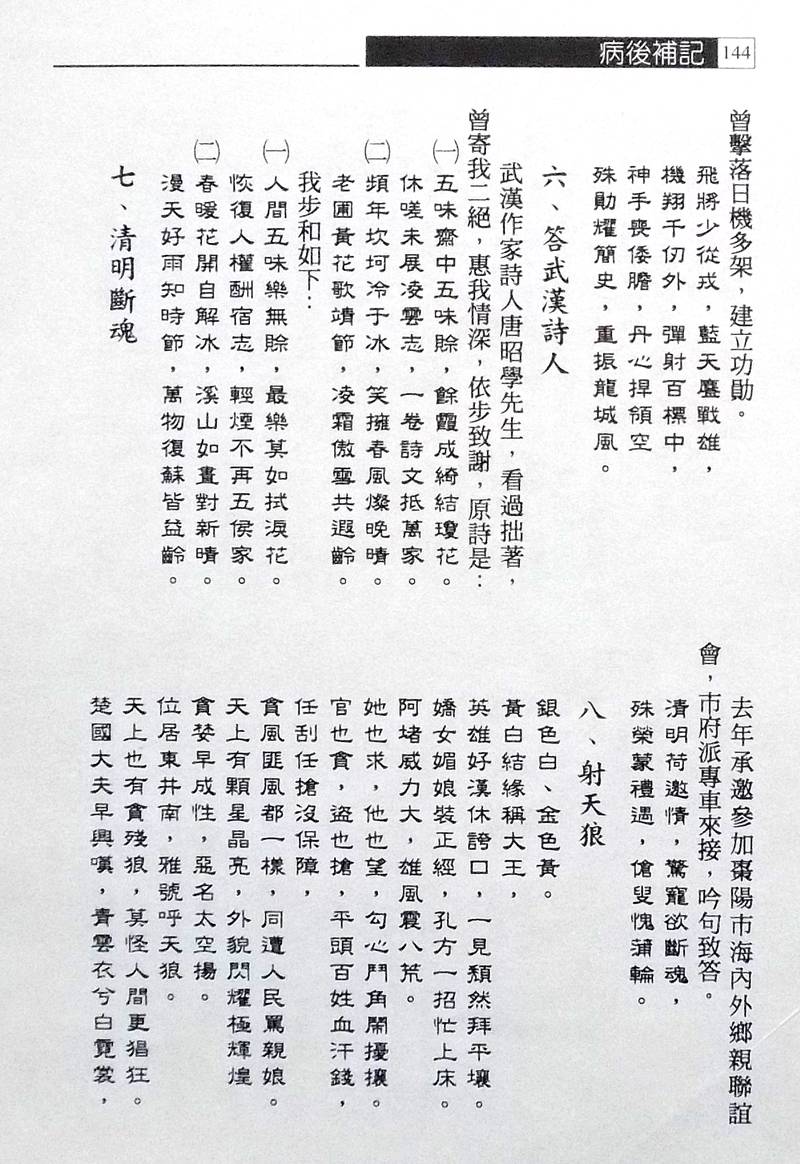 病後補記 144
曾擊落日機多架，建立功勛。
飛將少從戎，藍天鏖戰雄，
機翔千仞外，彈射百標中，
神手喪倭膽，丹心捍領空
殊勛耀簡史，重振龍城風。
六、答武漢詩人
武漢作家詩人唐昭學先生，看過拙著，
曾寄我二絕，惠我情深，依步致謝，原詩是：
㈠五味齋中五味賒，餘霞成綺結瓊花。
休嗟未展凌雲志，一卷詩文抵萬家。
㈡頻年坎坷冷于冰，笑擁春風燦晚晴。
老圃黃花歌靖節，凌霜傲雪共遐齡。
我步和如下：
㈠人間五味樂無賒，最樂莫如拭淚花。
恢復人權酬宿志，輕煙不再五侯家。
㈡春暖花開自解冰，溪山如畫對新晴。
漫天好雨知時節，萬物復蘇皆益齡。
七、清明斷魂
去年承邀參加棗陽市海內外鄉親聯誼
會，市府派專車來接，吟句致答。
清明荷邀情，驚寵欲斷魂，
殊榮蒙禮遇，傖叟愧蒲輪。
八、射天狼
銀色白、金色黃。
黃白結緣稱大王，
英雄好漢休誇口，一見頹然拜平壤。
嬌女媚娘裝正經，孔方一招忙上床。
阿堵威力大，雄風震八荒。
她也求，他也望，勾心鬥角鬧擾攘。
官也貪，盜也搶，平頭百姓血汗錢，
任刮任搶沒保障，
貪風匪風都一樣，同遭人民罵親娘。
天上有顆星晶亮，外貌閃耀極輝煌
貪婪早成性，惡名太空揚。
位居東井南，雅號呼天狼。
天上也有貪殘狼，莫怪人間更猖狂。
楚國大夫早興嘆，青雲衣兮白霓裳，